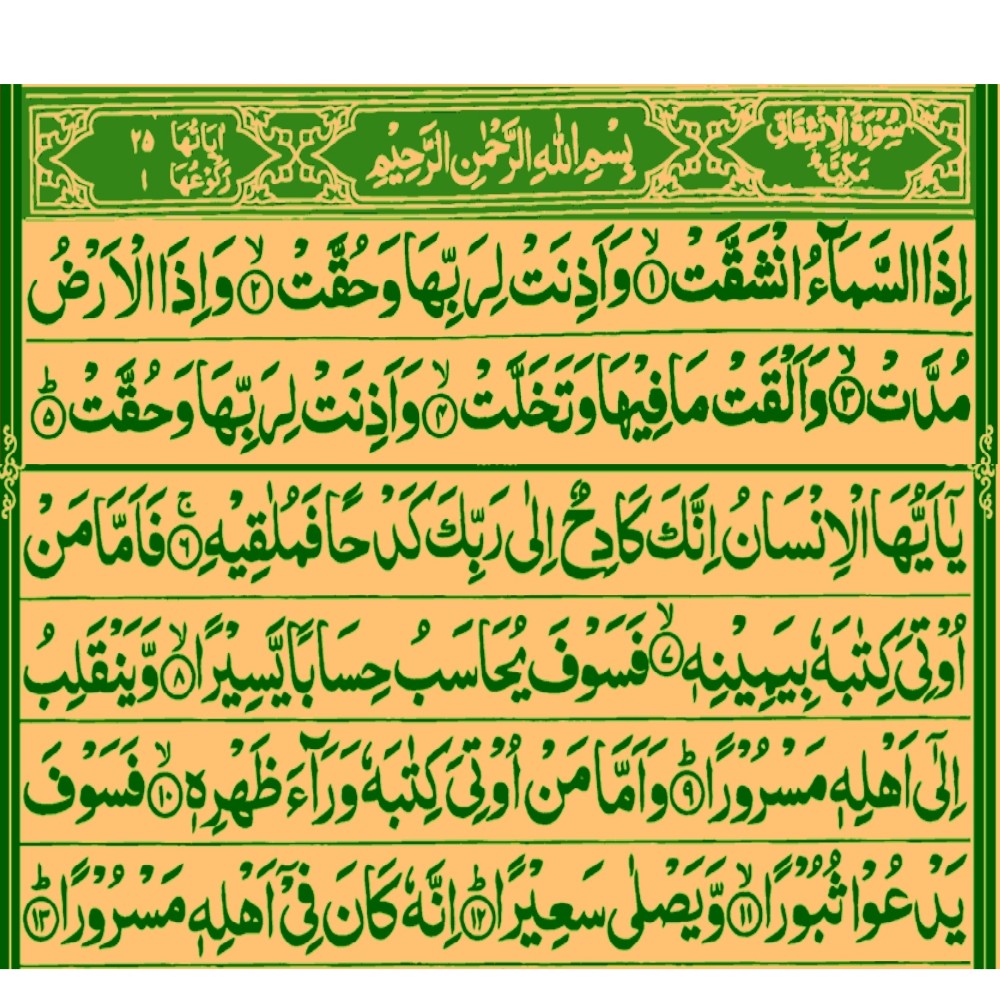 سُوْرَةُ الْاِنْشِقَاقِ
مَكِّيَّةٌ
بِسْمِ اللّٰهِ الرَّحْمٰنِ الرَّحِيْمِ
اٰيَاتُهَا ٢٥
رُكُوْعُهَا ١
اِذَا السَّمَآءُ انْشَقَّتْ ۙ﴿١﴾ وَاَذِنَتْ لِرَبِّهَا وَحُقَّتْ ۙ﴿٢﴾ وَاِذَا الْاَرْضُ
مُدَّتْ ۙ﴿٣﴾ وَاَلْقَتْ مَا فِيْهَا وَتَخَلَّتْ ۙ﴿٤﴾ وَاَذِنَتْ لِرَبِّهَا وَحُقَّتْ ؕ﴿٥﴾
يٰۤاَيُّهَا الْاِنْسَانُ اِنَّكَ كَادِحٌ اِلٰى رَبِّكَ كَدْحًا فَمُلٰقِيْهِ ۚ﴿٦﴾ فَاَمَّا مَنْ
اُوْتِىَ كِتٰبَهٗ بِيَمِيْنِهٖ ۙ﴿٧﴾ فَسَوْفَ يُحَاسَبُ حِسَابًا يَّسِيْرًا ۙ﴿٨﴾ وَّيَنْقَلِبُ
اِلٰٓى اَهْلِهٖ مَسْرُوْرًا ؕ﴿٩﴾ وَاَمَّا مَنْ اُوْتِىَ كِتٰبَهٗ وَرَآءَ ظَهْرِهٖ ۙ﴿١٠﴾ فَسَوْفَ
يَدْعُوْا ثُبُوْرًا ۙ﴿١١﴾ وَّيَصْلٰى سَعِيْرًا ؕ﴿١٢﴾ اِنَّهٗ كَانَ فِىْۤ اَهْلِهٖ مَسْرُوْرًا ؕ﴿١٣﴾